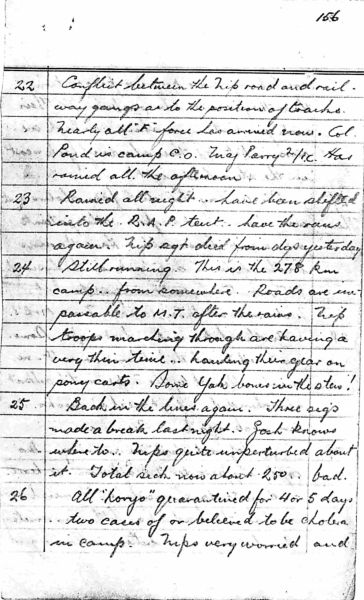 156
22 Conflict between the Nip road and rail-
way gangs as to the position of tracks.
Nearly all "F" force has arrived now. Col
Pond is camp C.O. Maj Parry 2/ic. Has
rained all the afternoon
23 Rained all night .. have been shifted
into the R.A.P. tent .. have the runs
again. Nip sgt died from dys yesterday
24 Still running. This is the 278 km
camp .. from somewhere. Roads are im-
passable to M.T. after the rains. Nip
troops marching through are having a
very thin time .. hauling their gear on
pony carts. Some Yak bones in the stew!
25 Back in the lines again. Three sigs
made a break last night .. Gosh knows
where to. Nips quite unperturbed about
it. Total sick now about 250 .. bad.
26 All "horyo" quarantined for 4 or 5 days
.. two cases of or believed to be cholera
in camp. Nips very worried and